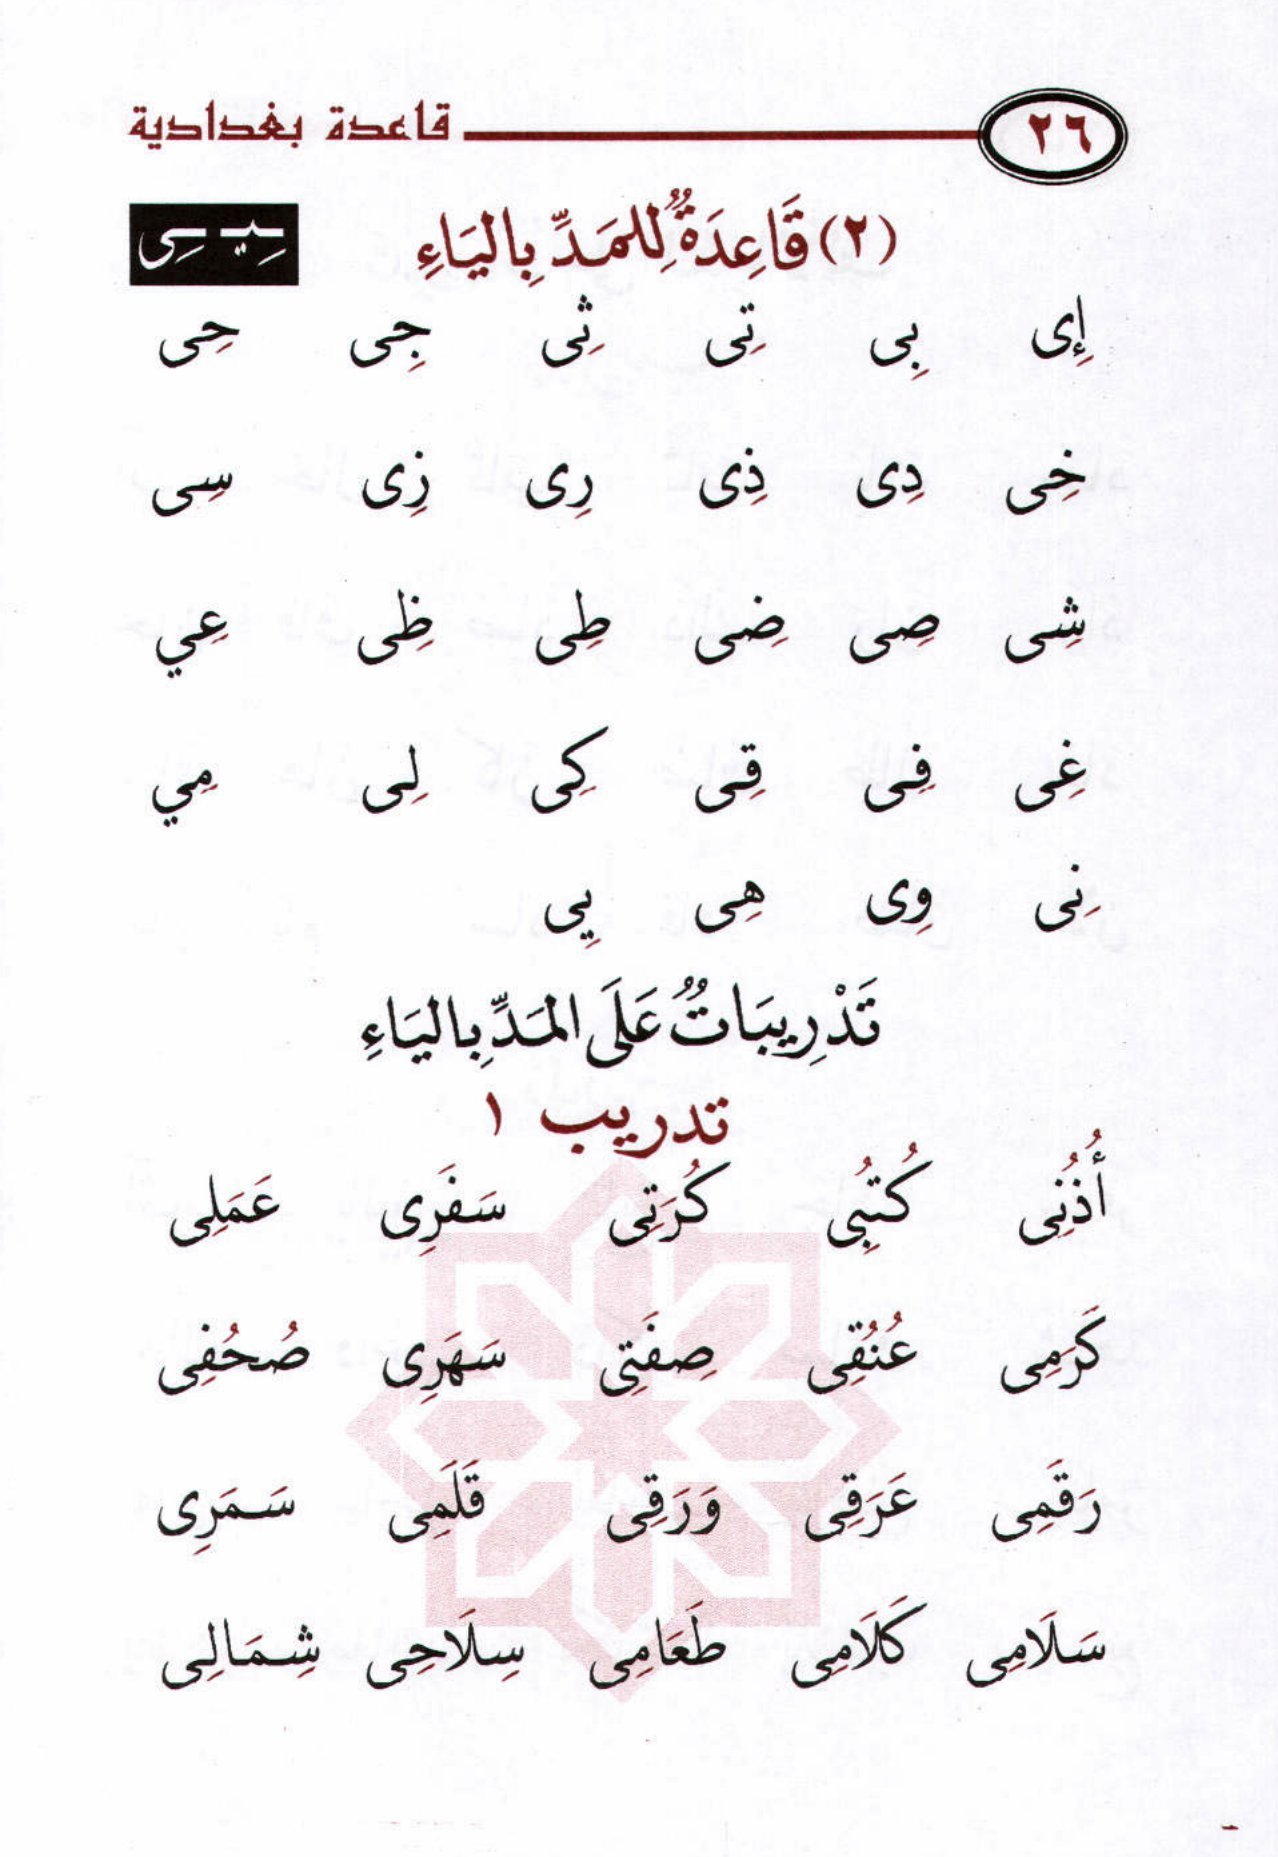 ٢٦ قاعدة بغدادية
(٢) قَاعِدَةٌ لِلمَدِّ بِاليَاءِ ـِيـ ـِى
إِى بِى تِى ثِى جِى حِى
خِى دِى ذِى رِى زِى سِى
شِى صِى ضِى طِى ظِى عِي
غِى فِى قِى كِى لِى مِي
نِى وِى هِى يِى
تَدْرِيبَاتٌ عَلَى المَدِّ بِاليَاءِ
تدريب ١
أُذُنِى كُتُبِى كُرَتِى سَفَرِى عَمَلِى
كَرَمِى عُنُقِى صِفَتِى سَهَرِى صُحُفِى
رَقَمِى عَرَقِى وَرَقِى قَلَمِى سَمَرِى
سَلَامِى كَلَامِى طَعَامِى سِلَاحِى شِمَالِى